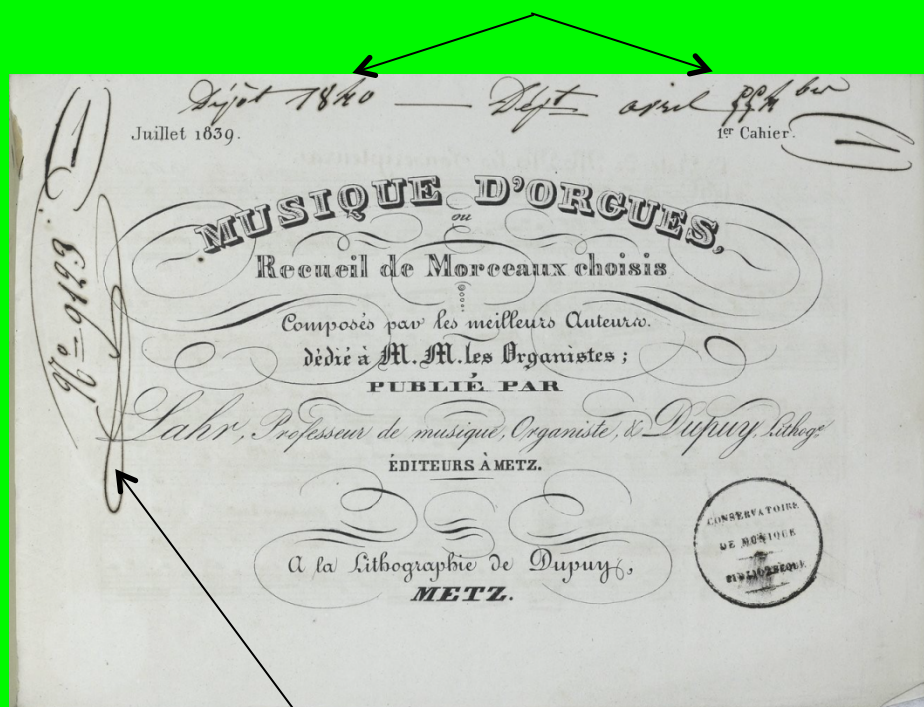 Dépôt 1840 — Dépt avril
Juillet 1839.
1er Cahier.
MUSIQUE D'ORGUES,
ou
Recueil de Morceaux choisis
Composés par les meilleurs Auteurs.
dédié à M. M. les Organistes ;
PUBLIÉ PAR
Lahr, Professeur de musique, Organiste, & Dupuy, Lithoge
ÉDITEURS À METZ.
A la Lithographie de Dupuy,
METZ.
CONSERVATOIRE
DE MUSIQUE
BIBLIOTHEQUE